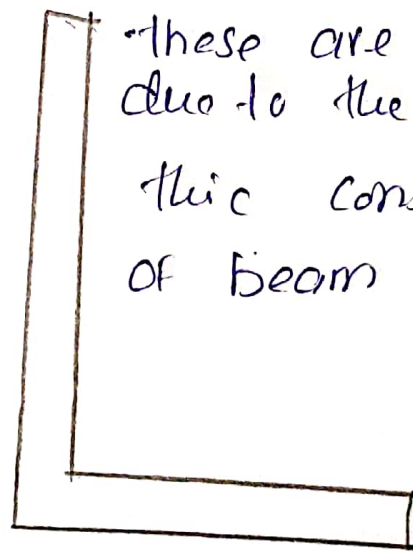 these are
due to the
this con
of beam